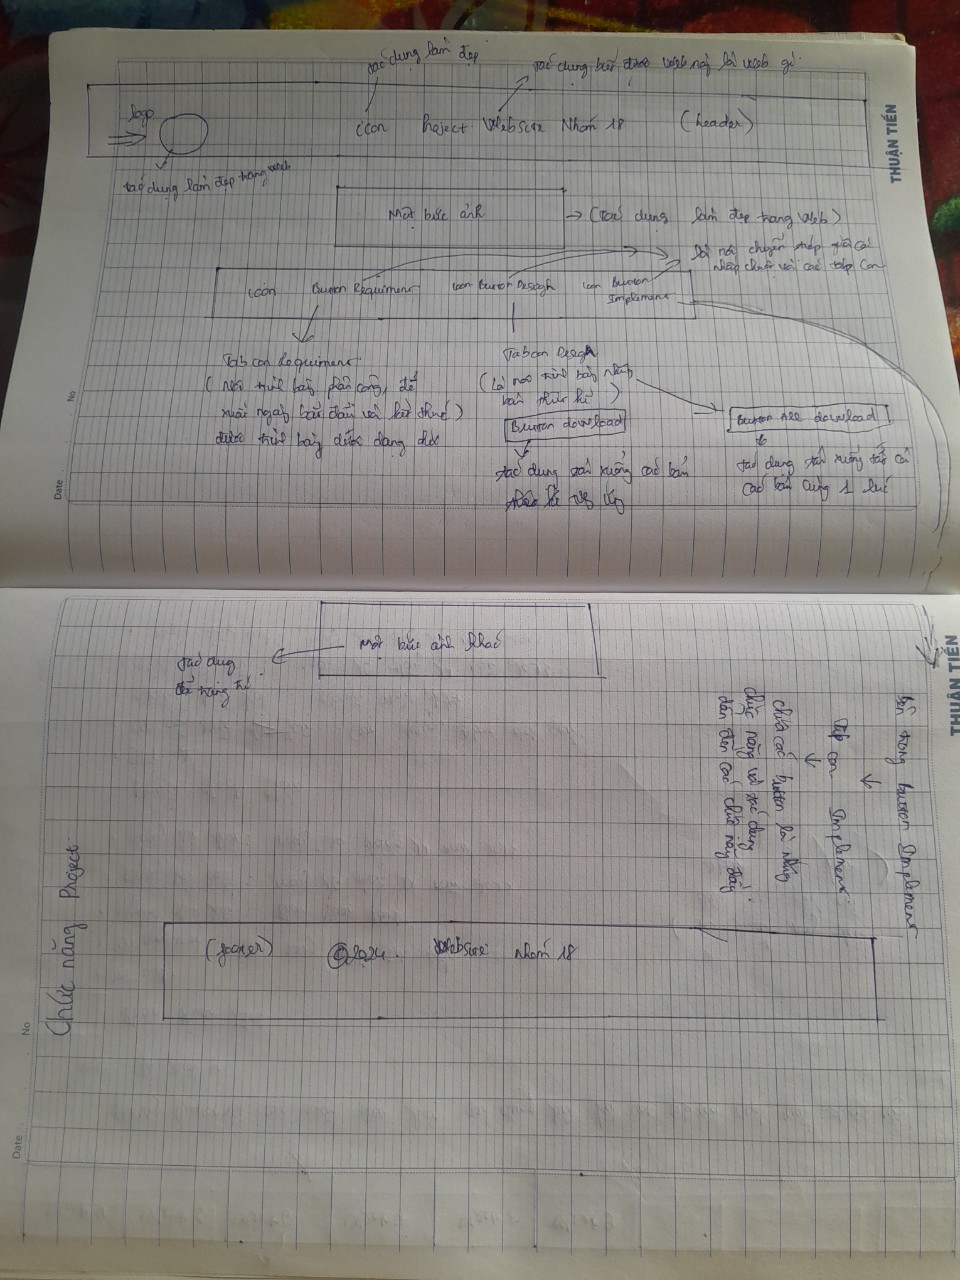 tác dụng làm đẹp
tác dụng biết được web này là web gì
logo
icon Project WebSite Nhóm 18 (header)
THUẬN TIẾN
tác dụng làm đẹp trang web
Một bức ảnh
(Tác dụng làm đẹp trang Web)
là nơi chuyển tiếp giữa cái
nhấp chuột với các tập con
icon Button Requiment icon Button Desigh icon Button
Implement
Tab con Requiment
(Nơi trình bày phân công, đề
xuất ngày bắt đầu và kết thúc)
được trình bày dưới dạng
Tab con Desigh
(Là nơi trình bày những
bản thiết kế)
Button download
tác dụng tải xuống các bản
thiết kế
Button All download
tác dụng tải xuống tất cả
các bản cùng 1 lúc
No
Date
Một bức ảnh khác
tác dụng
để trang trí
THUẬN TIẾN
bên trong button Implement
tập con Implement
chứa các button là những
chức năng và tác dụng
dẫn đến các chức năng đấy
(footer) ©2024. WebSite nhóm 18
Chức năng Project
No
Date